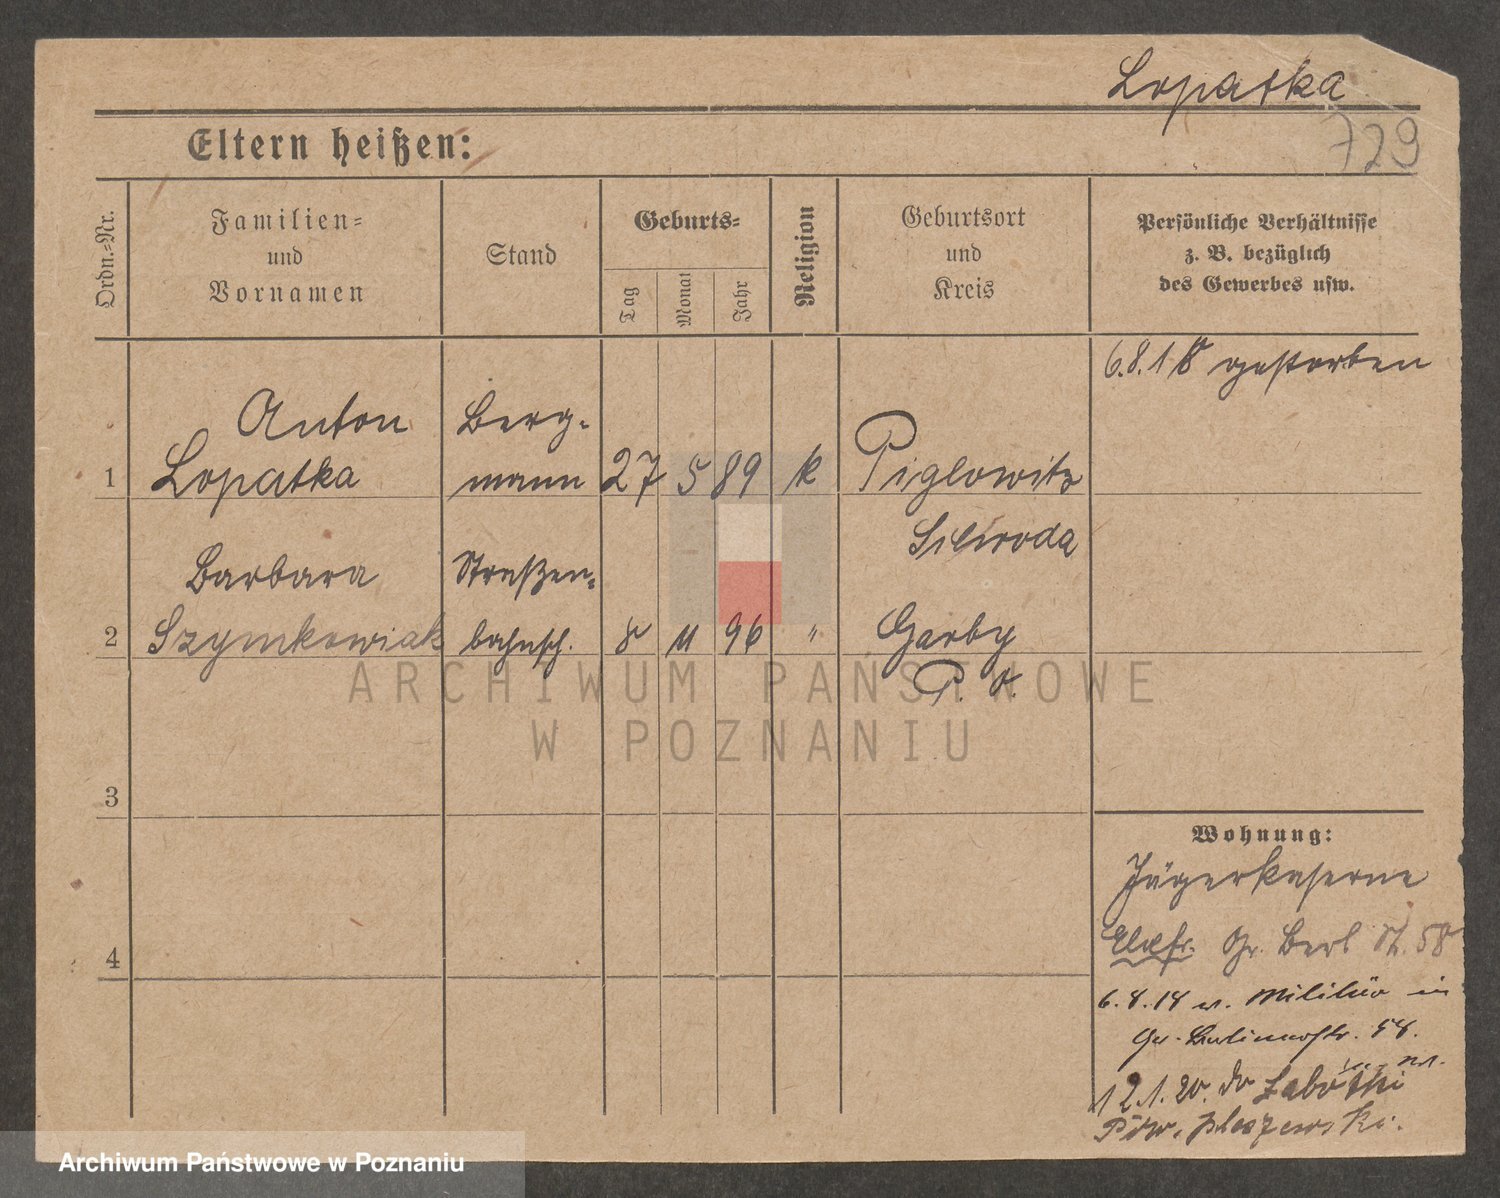 Lopatka
729
Eltern heißen:
Ordn.-Nr.
Familien-
und
Vornamen
Stand
Geburts-
Tag
Monat
Jahr
Religion
Geburtsort
und
Kreis
Persönliche Verhältnisse
z. B. bezüglich
des Gewerbes usw.
6.8.18 gestorben
Anton
Lopatka
Berg-
mann
1
27 5 89 k
Piglowitz
Schroda
Barbara
Szymkowiak
Straßen-
bahnsch.
2
8 11 96 "
Garby
P. O.
3
4
Wohnung:
Jägerkaserne
Gr. Berl. St. 58
6.8.14 v. Militär in
Gr. Berlinerstr. 54.
12.1.20. do Zabothi
Pow. Pleszewski.
ARCHIWUM PAŃSTWOWE
W POZNANIU
Archiwum Państwowe w Poznaniu